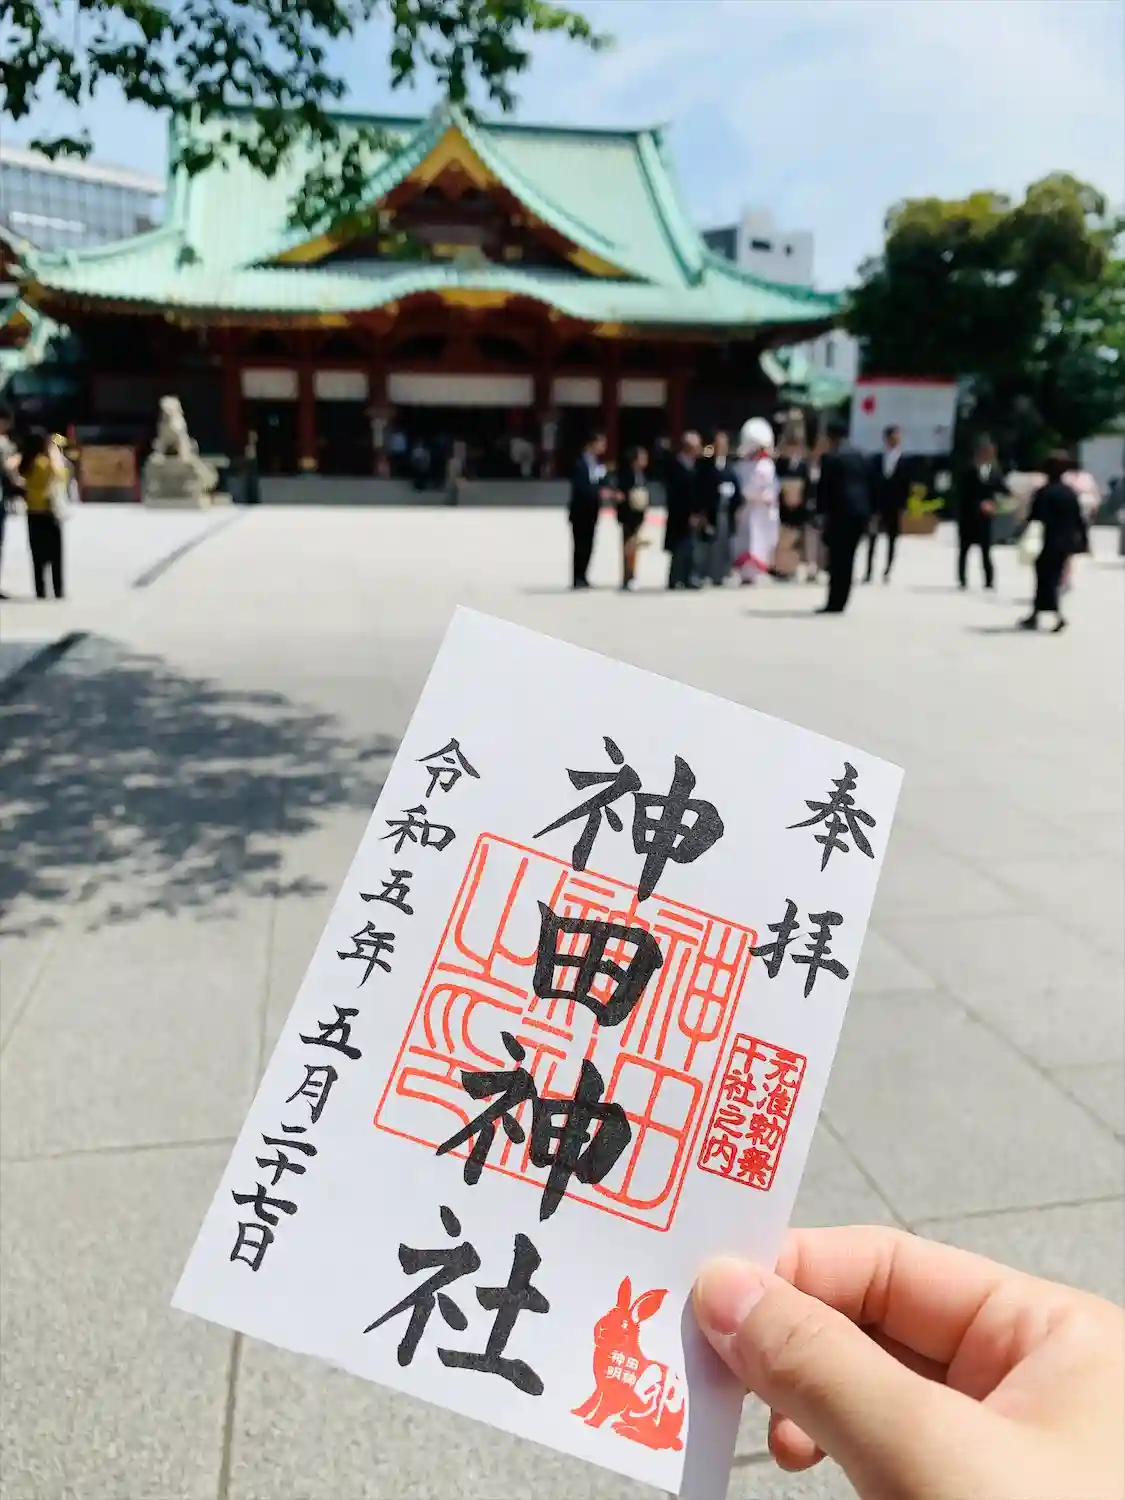 奉拝
元准勅祭
十社之内
神田神社
神田神社之印
令和五年五月二十七日
神田
明神
卯